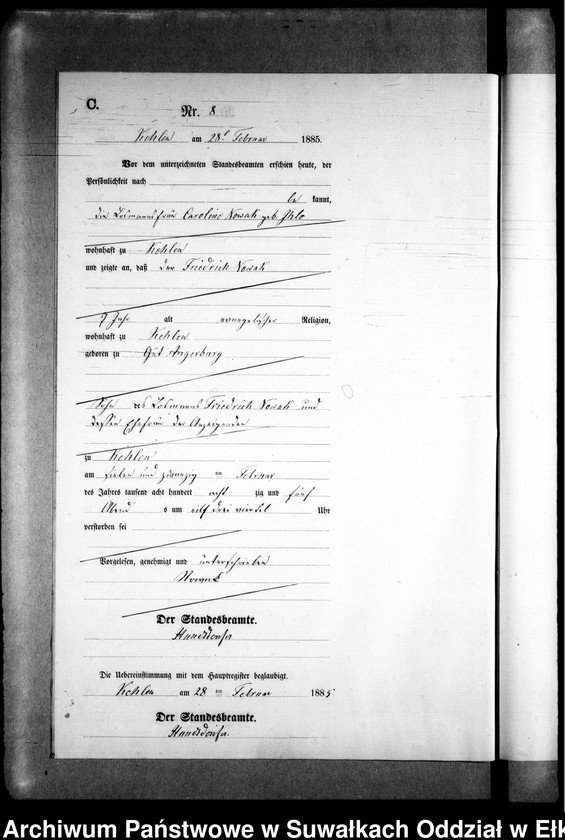 C.
Nr. 8
Kehlen am 28t Februar 1885.
Vor dem unterzeichneten Standesbeamten erschien heute, der
Persönlichkeit nach
be kannt,
die Losmannsfrau Caroline Nowak geb.
wohnhaft zu Kehlen
und zeigte an, daß der Friedrich Nowak
7 Jahr alt evangelischer Religion,
wohnhaft zu Kehlen
geboren zu Gut Angerburg
Sohn des Losmanns Friedrich Nowak und
dessen Ehefrau der Anzeigenden
zu Kehlen
am sieben und zwanzig ten Februar
des Jahres tausend acht hundert acht zig und fünf
Abend s um elf drei viertel Uhr
verstorben sei
Vorgelesen, genehmigt und unterschrieben
Nowak
Der Standesbeamte.
Die Uebereinstimmung mit dem Hauptregister beglaubigt.
Kehlen am 28 ten Februar 1885
Der Standesbeamte.
Archiwum Państwowe w Suwałkach Oddział w Ełk